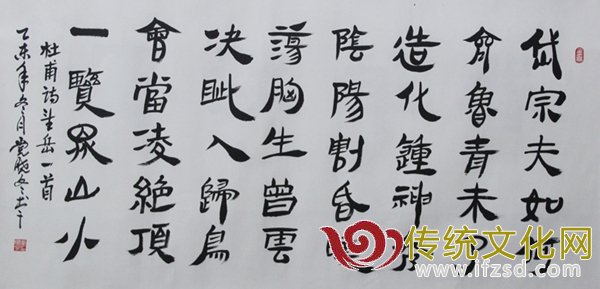 岱宗夫如何
齊魯青未了
造化鍾神秀
陰陽割昏曉
蕩胸生曾雲
決眦入歸鳥
會當凌絕頂
一覽眾山小
杜甫詩望岳一首
乙未年冬月
传统文化网
www.ifzsd.com